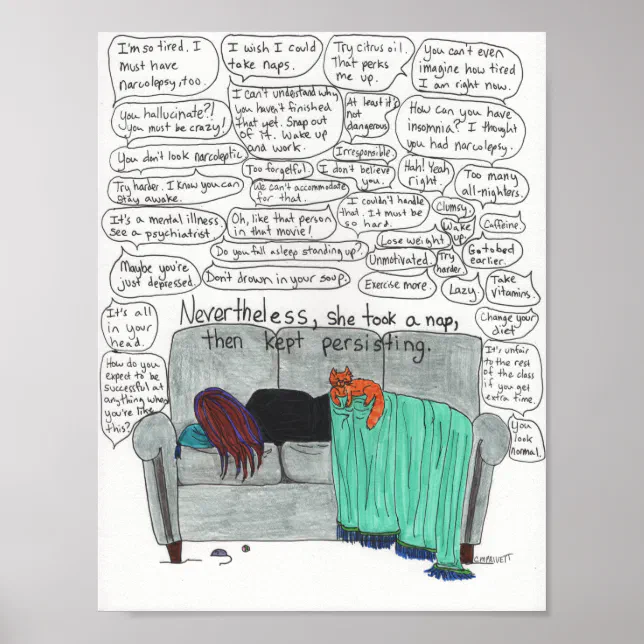 I'm so tired. I
must have
narcolepsy, too.
I wish I could
take naps.
Try citrus oil.
That perks
me up.
You can't even
imagine how tired
I am right now.
You hallucinate?!
you must be crazy!
I can't understand why
you haven't finished
that yet. Snap out
of it. Wake up
and work.
At least it's
not
dangerous
How can you have
insomnia? I thought
you had narcolepsy.
You don't look narcoleptic
Too forgetful.
Irresponsible.
I don't believe
you.
Hah! Yeah
right.
Too many
all-nighters.
Try harder. I know you can
stay awake.
We can't accommodate
for that.
I couldn't handle
that. It must be
so hard.
Clumsy.
Caffeine.
It's a mental illness.
see a psychiatrist
Oh, like that person
in that movie!
Wake
up
Lose weight
Do you fall asleep standing up?
Unmotivated.
Try
harder
Go to bed
earlier.
Maybe you're
just depressed.
Don't drown in your soup.
Exercise more.
Lazy.
Take
vitamins.
It's all
in your
head.
Nevertheless, she took a nap,
then kept persisting.
Change your
diet
How do you
expect to be
successful at
anything when
you're like
this?
It's unfair
to the rest
of the class
if you get
extra time.
You
look
normal.
CMPRIVETT